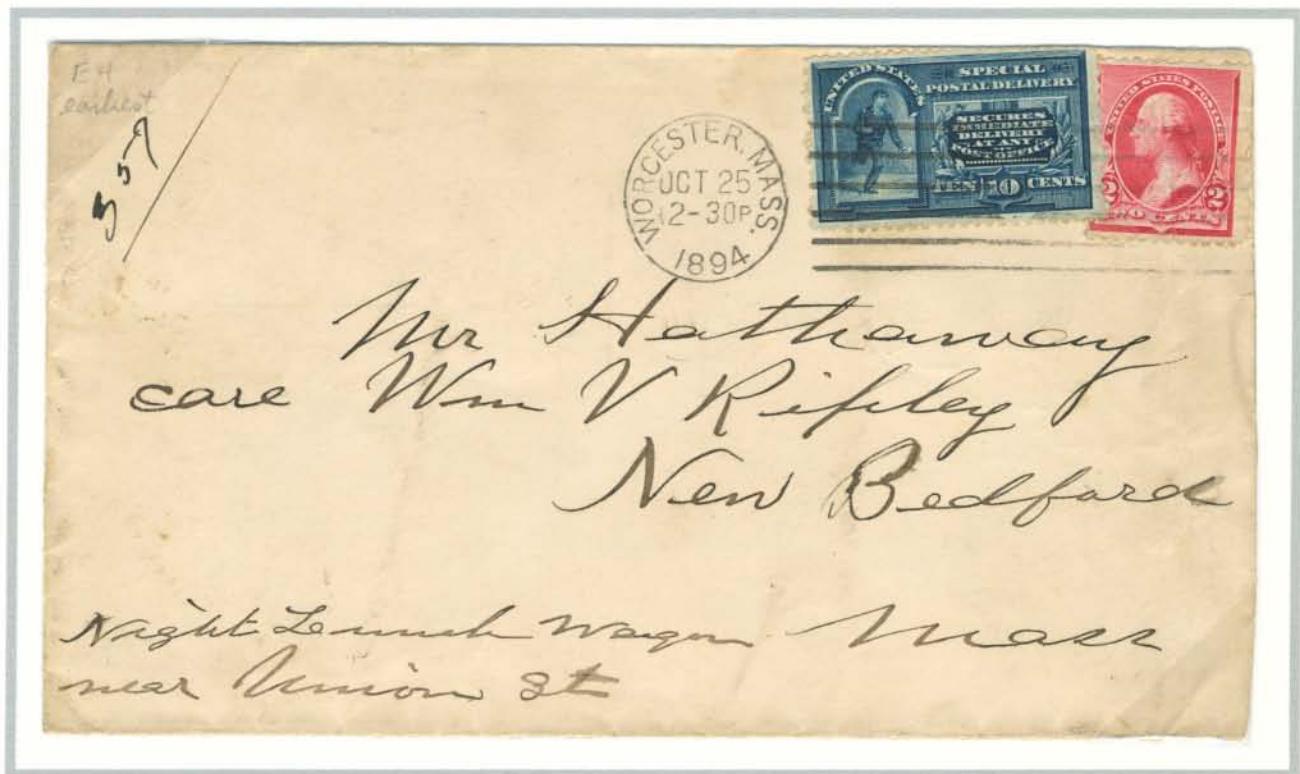 E4
earliest
557
WORCESTER, MASS.
OCT 25
12-30P
1894
UNITED STATES
SPECIAL
POSTAL DELIVERY
SECURES
IMMEDIATE
DELIVERY
AT ANY
POST OFFICE
TEN 10 CENTS
UNITED STATES POSTAGE
2 2
TWO CENTS
Mr Hathaway
care Wm V Ripley
New Bedford
Mass
Night Lunch Wagon
near Union St